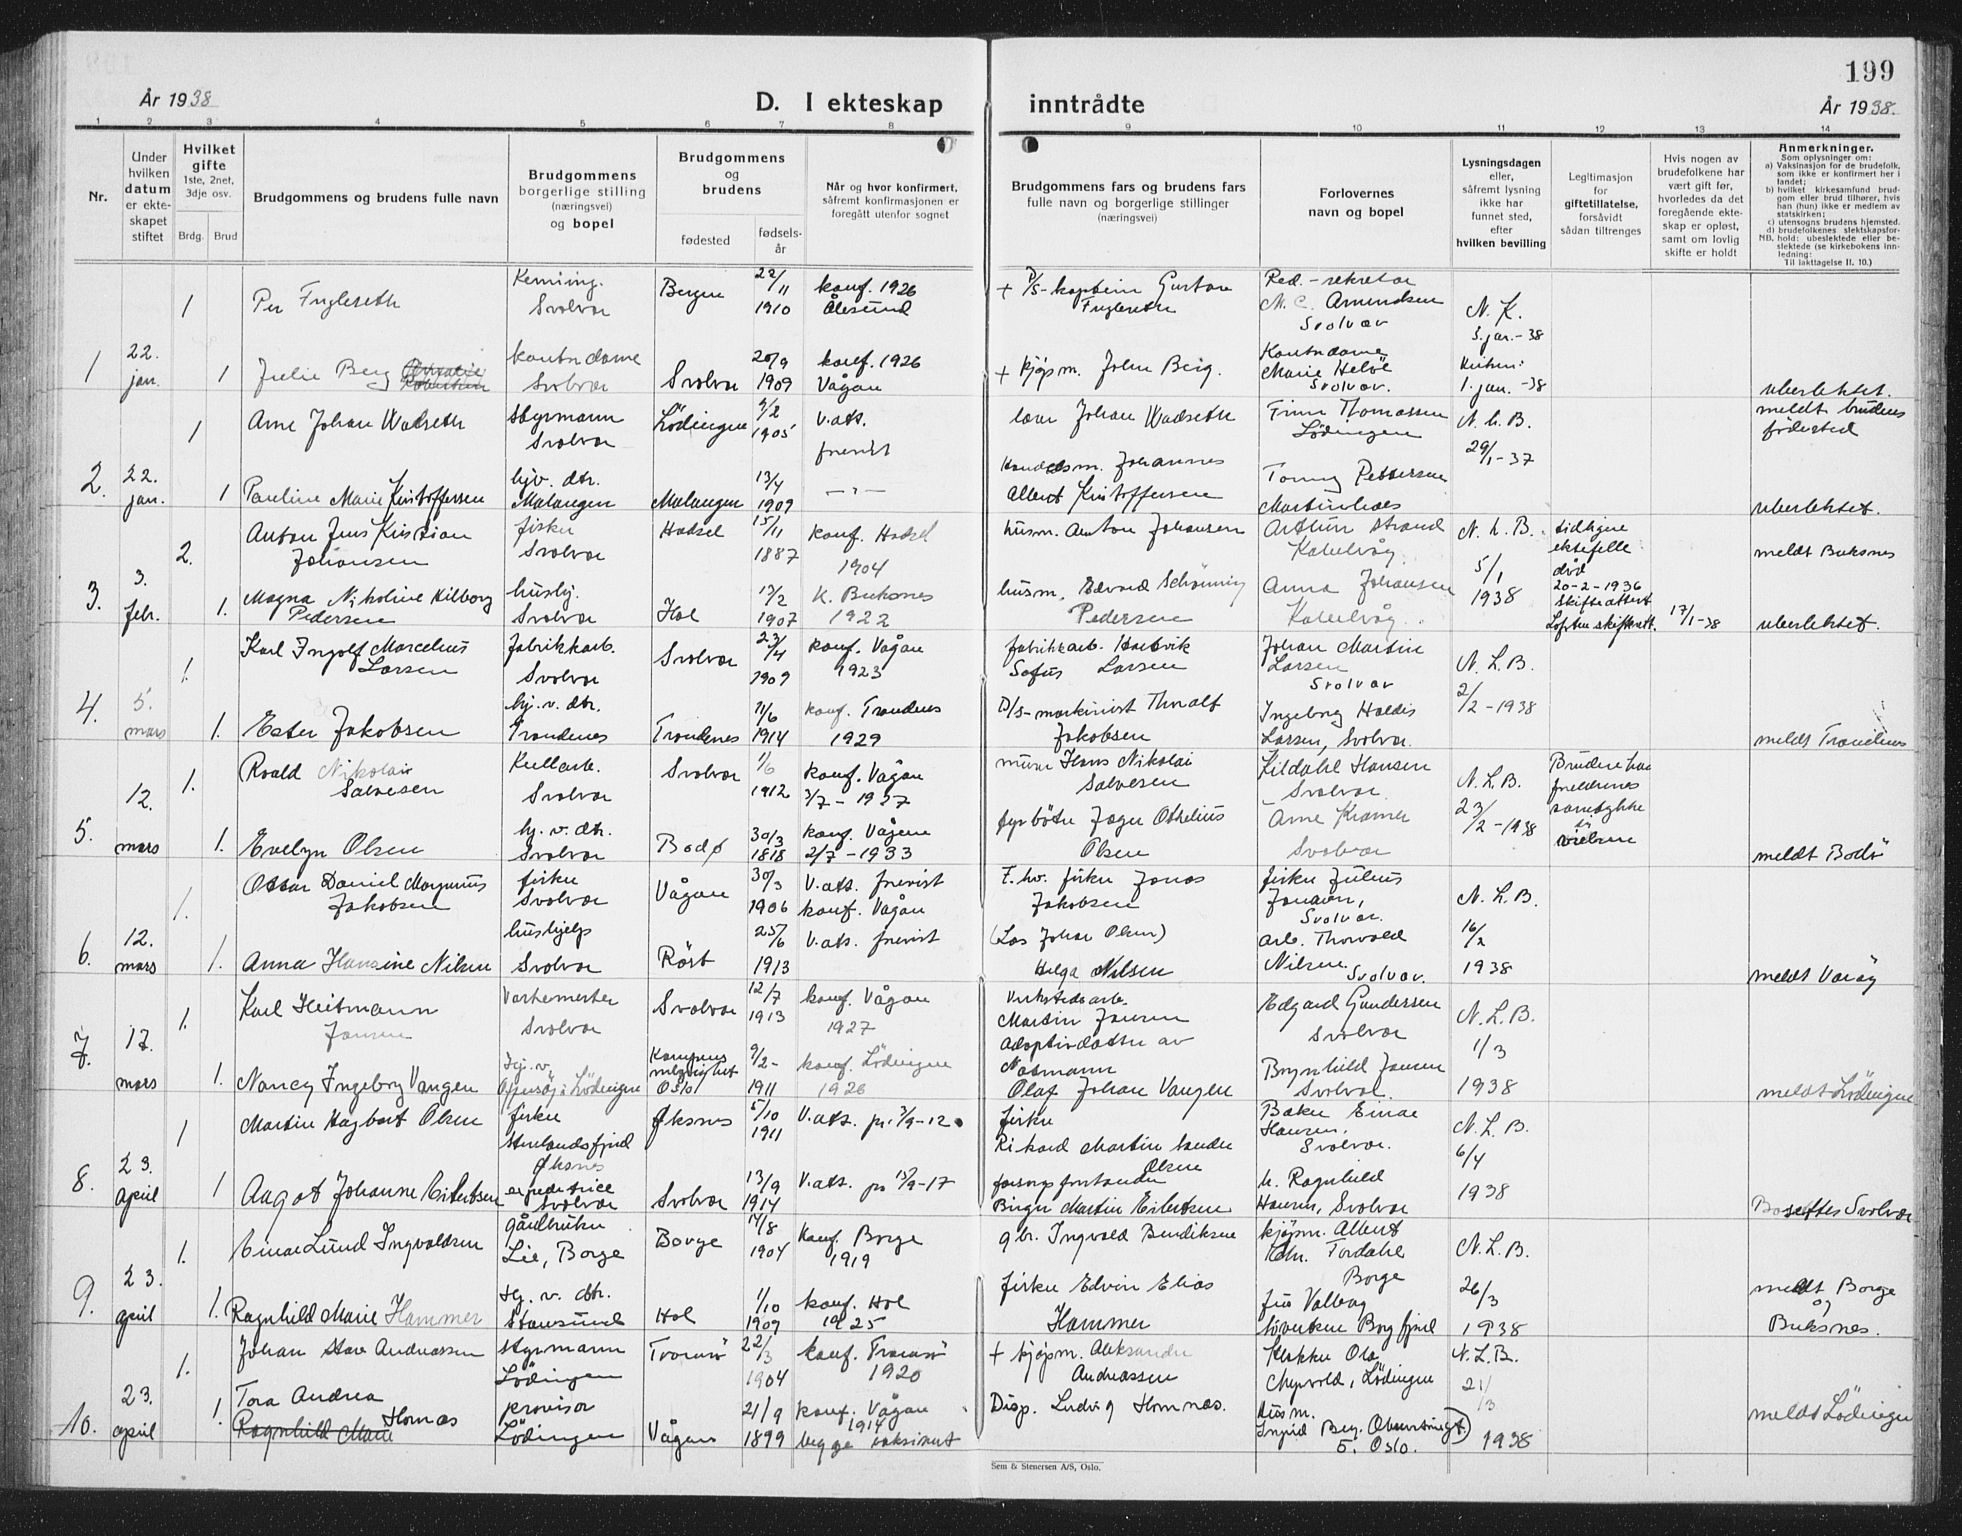 199
År 1938
D. I ekteskap inntrådte
År 1938.
1 2 3 4 5 6 7 8 9 10 11 12 13 14
Nr.
Under hvilken datum er ekteskapet stiftet
Hvilket gifte
1ste, 2net, 3dje osv.
Brdg. Brud
Brudgommens og brudens fulle navn
Brudgommens borgerlige stilling (næringsvei) og bopel
Brudgommens og brudens
fødested
fødselsår
Når og hvor konfirmert, såfremt konfirmasjonen er foregått utenfor sognet
Brudgommens fars og brudens fars fulle navn og borgerlige stillinger (næringsvei)
Forlovernes navn og bopel
Lysningsdagen eller, såfremt lysning ikke har funnet sted, efter hvilken bevilling
Legitimasjon for giftetillatelse, forsåvidt sådan tiltrenges
Hvis nogen av brudefolkene har vært gift før, hvorledes da det foregående ekteskap er opløst, samt om lovlig skifte er holdt
Anmerkninger.
Som oplysninger om:
a) Vaksinasjon for de brudefolk, som ikke er konfirmert her i landet;
b) hvilket kirkesamfund brudgom eller brud tilhører, hvis han (hun) ikke er medlem av statskirken;
c) utensogns brudens hjemsted.
d) brudefolkenes slektskapsforhold: ubeslektede eller beslektede (se kirkebokens innledning:
NB. Til iakttagelse II. 10.)
1 Per Fugleseth
Svolvær
Bergen
22/11 1910
konf. 1926 Ålesund
+ D/s-kaptein Gustav Fugleseth
Red.-sekretær N. C. Amundsen Svolvær
N. K. 5 jan.-38
1 22. jan. 1 Julie Berg
kontordame Svolvær
Svolvær
20/9 1909
konf. 1926 Vågan
+ kjøpm. John Berg.
Kontordame Marie Heløe Svolvær.
1. jan. -38
ubeslektet.
1 Arne Johan Wadseth
Styrmann Svolvær
Lödingen
9/2 1905
v.att.
lærer Johan Wadseth
Finn Thomassen Lödingen
N. L. B.
29/1-37
meldt brudens fødested
2. 22. jan. 1 Pauline Marie Kristoffersen
hjv. dtr. Malangen
Malangen
13/4 1909
— " —
Handelsm. Johannes Albert Kristoffersen
Tonny Pettersen
ubeslektet.
2. Anton Jens Kristian Johansen
fisker Svolvær
Hadsel
15/11 1887
konf. Hadsel 1904
husm. Anton Johansen
Arthur Strand Kabelvåg
N. L. B. 5/1 1938
tidligere ektefelle död 20-2-1936 Skifteattest Lofoten skifterett.
17/1-38
meldt Buksnes
3. 3. febr. 1. Magna Nikoline Kilborg Pedersen
hushj. Svolvær
Hol
13/2 1907
K. Buksnes 1922
husm. Edvard Schönning Pedersen
Anna Johansen Kabelvåg
ubeslektet.
1. Karl Ingolf Marcelius Larsen
Fabrikkarb. Svolvær
Svolvær
23/4 1909
konf. Vågan 1923
fabrikkarb. Hartvik Sofus Larsen
Johan Martin Larsen Svolvær
N. L. B. 2/2-1938
4. 5. mars 1. Ester Jakobsen
hj. v. dtr. Trondenes
Trondenes
11/6 1914
konf. Trondenes 1929
D/s-maskinist Thoralf Jakobsen
Ingeborg Haldis Larsen, Svolvær.
meldt Trondenes
1. Roald Nikolai Salvesen
Kullarb. Svolvær
Svolvær
1/6 1912
konf. Vågan 3/7-1927
murer Hans Nikolai Salvesen
Kildahl Hansen Svolvær
N. L. B. 23/2-1938
Bruden har foreldrenes samtykke til vielsen
5. 12. mars 1. Evelyn Olsen
hj. v. dtr. Svolvær
Bodø
30/3 1818
konf. Vågan 2/7-1933
fyrböter Jøger Othelius Olsen
Arne Kramer Svolvær
meldt Bodö
1. Ottar Daniel Magnus Jakobsen
fisker Svolvær
Vågan
30/3 1906
V. att. forevist konf. Vågan
F. hv. fisker Jonas Jakobsen
fisker Julius Jonassen, Svolvær.
N. L. B. 16/2 1938
6. 12. mars 1. Anna Hansine Nilsen
hushjelp Svolvær
Röst
25/6 1913
V. att. forevist
(Los Johan Olsen) Helga Nilsen
arb. Thorvald Nilsen Svolvær.
meldt Væröy
1. Karl Heitmann Jensen
Varkemester Svolvær
Svolvær
12/7 1913
konf. Vågan 1927
Verkstedsarb. Martin Jensen
Edgard Gundersen Svolvær
N. L. B. 1/3 1938
7. 17. mars 1. Nancy Ingeborg Vangen
Hj. v. Lödingen
Kampens menighet Oslo
9/2- 1911
konf. Lödingen 1926
Adoptivdatter av Notmann Olaf Johan Vangen
Brynhild Jensen Svolvær.
meldt Lödingen
1 Martin Hagbart Olsen
fisker Steinlandsfjord Øksnes
Øksnes
5/10 1911
V. att. pr. 3/9-12.
fisker Rikard Martin Sander Olsen
Baker Einar Hansen, Svolvær.
N. L. B. 6/4 1938
8. 23. April 1 Aagot Johanne Eilertsen
expeditrice Svolvær
Svolvær
13/9 1914
V. att. pr 15/9-17
Birger Martin Eilertsen
h. Ragnhild Hansen, Svolvær
Bosettes Svolvær
1. Einar Lund Ingvaldsen
gårdbruker Lie, Borge
Borge
14/8 1904
konf. Borge 1919
gbr. Ingvald Bendiksen
kjöpm. Albert Tordahl Borge
N. L. B. 26/3 1938
9. 23. april 1. Ragnhild Marie Hammer
Hj. v. dtr. Stamsund
Hol
1/10 1909
konf. Hol 1925
fisker Edvin Elias Hammer
fru Valborg Borgfjord
meldt Borge og Buksnes.
1. Johan Stav Andreassen
styrmann Lödingen
Tromsö
22/3 1904
konf. Tromsö 1920
+ kjöpm. Aleksander Andreassen
Klokker Ola Lödingen
N. L. B. 21/3 1938
10. 23. april 1. Tora Andrea Hornæs
Ragnhild Marie
provisor Lödingen
Vågan
21/9 1899
konf. Vågan 1914 begge vaksinert
Disp. Ludvig Hornnæs.
Husm. Ingrid Berg. 5. Oslo.
meldt Lödingen
Sem & Stenersen A/S, Oslo.